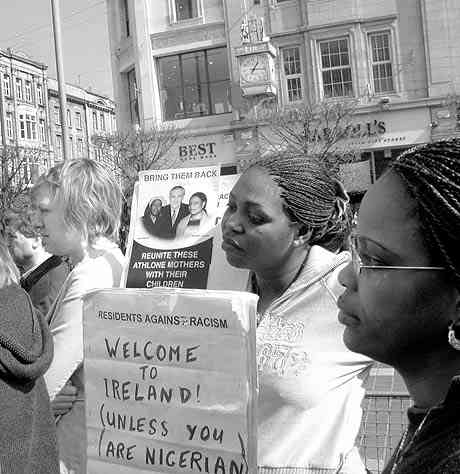 BEST
BRING THEM BACK
REUNITE THESE
ATHLONE MOTHERS
WITH THEIR
CHILDREN
RESIDENTS AGAINST RACISM
WELCOME
TO
IRELAND!
(UNLESS YOU)
(ARE NIGERIAN